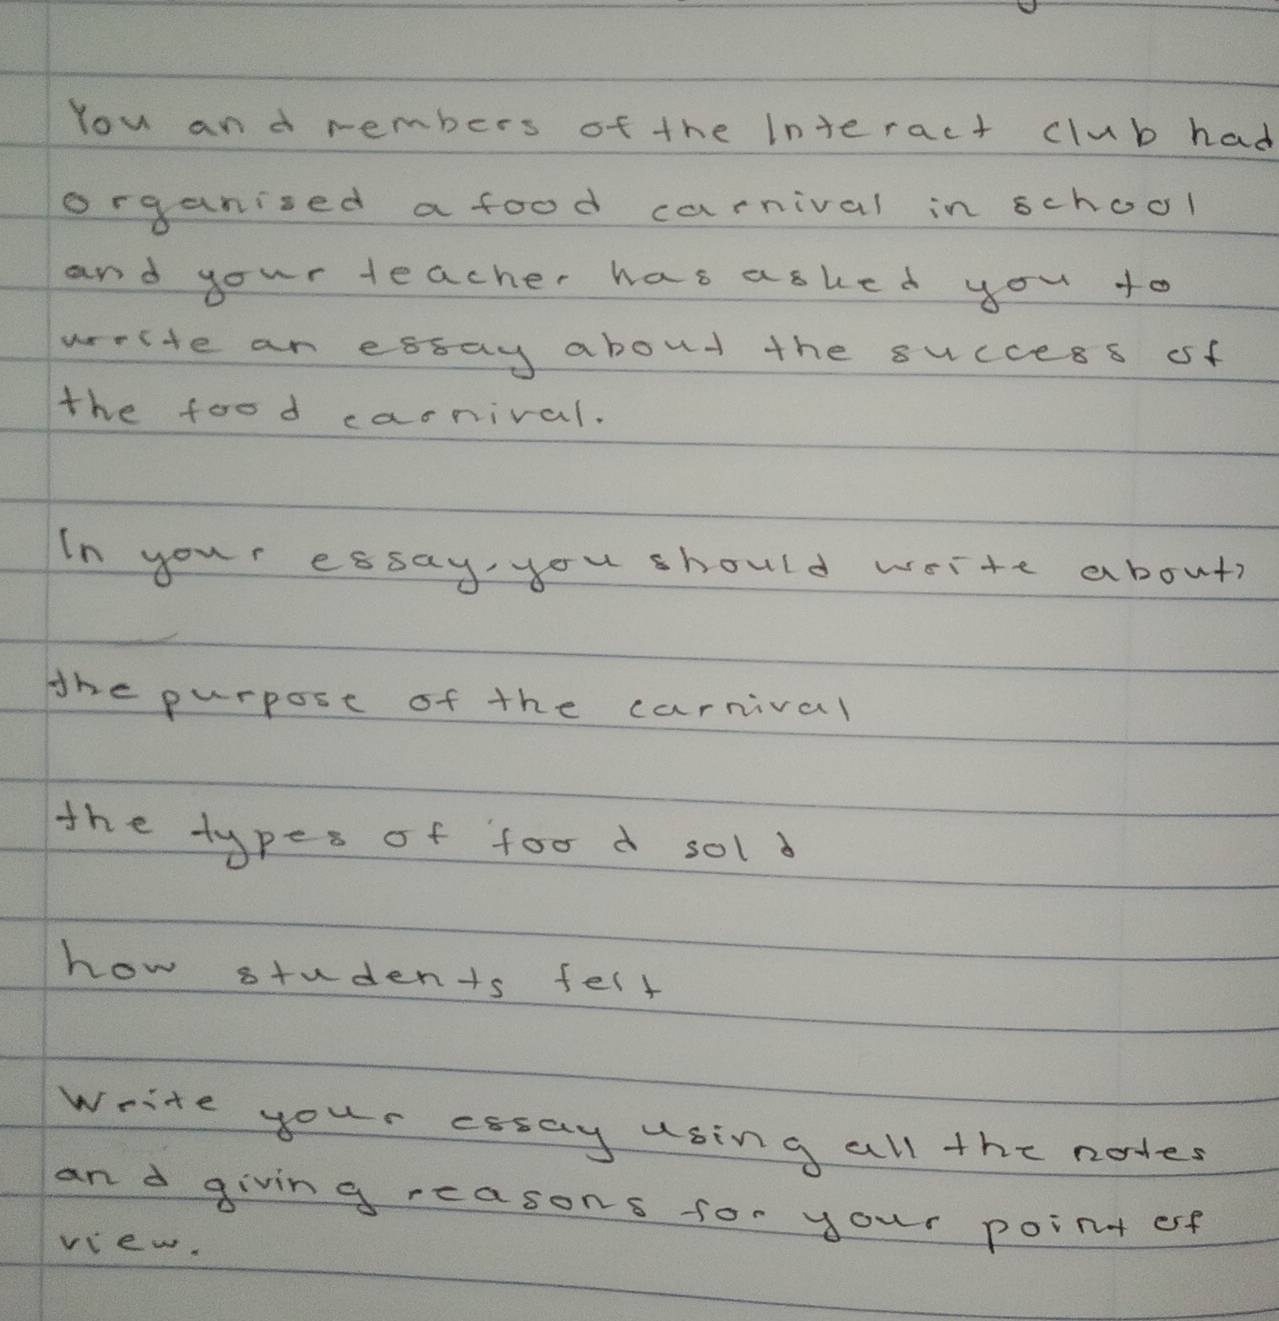 You and members of the Interact club had
organised a food carnival in school
and your teacher has asked you to
write an essay about the success of
the food carnival.
In your essay, you should write about,
the purpose of the carnival
the types of food sold
how students felt
Write your essay using all the notes
and giving reasons for your point of
view.